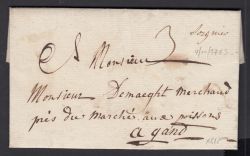 A Monsieur
Monsieur Demaeght Marchand
près du Marché aux poissons
a gand